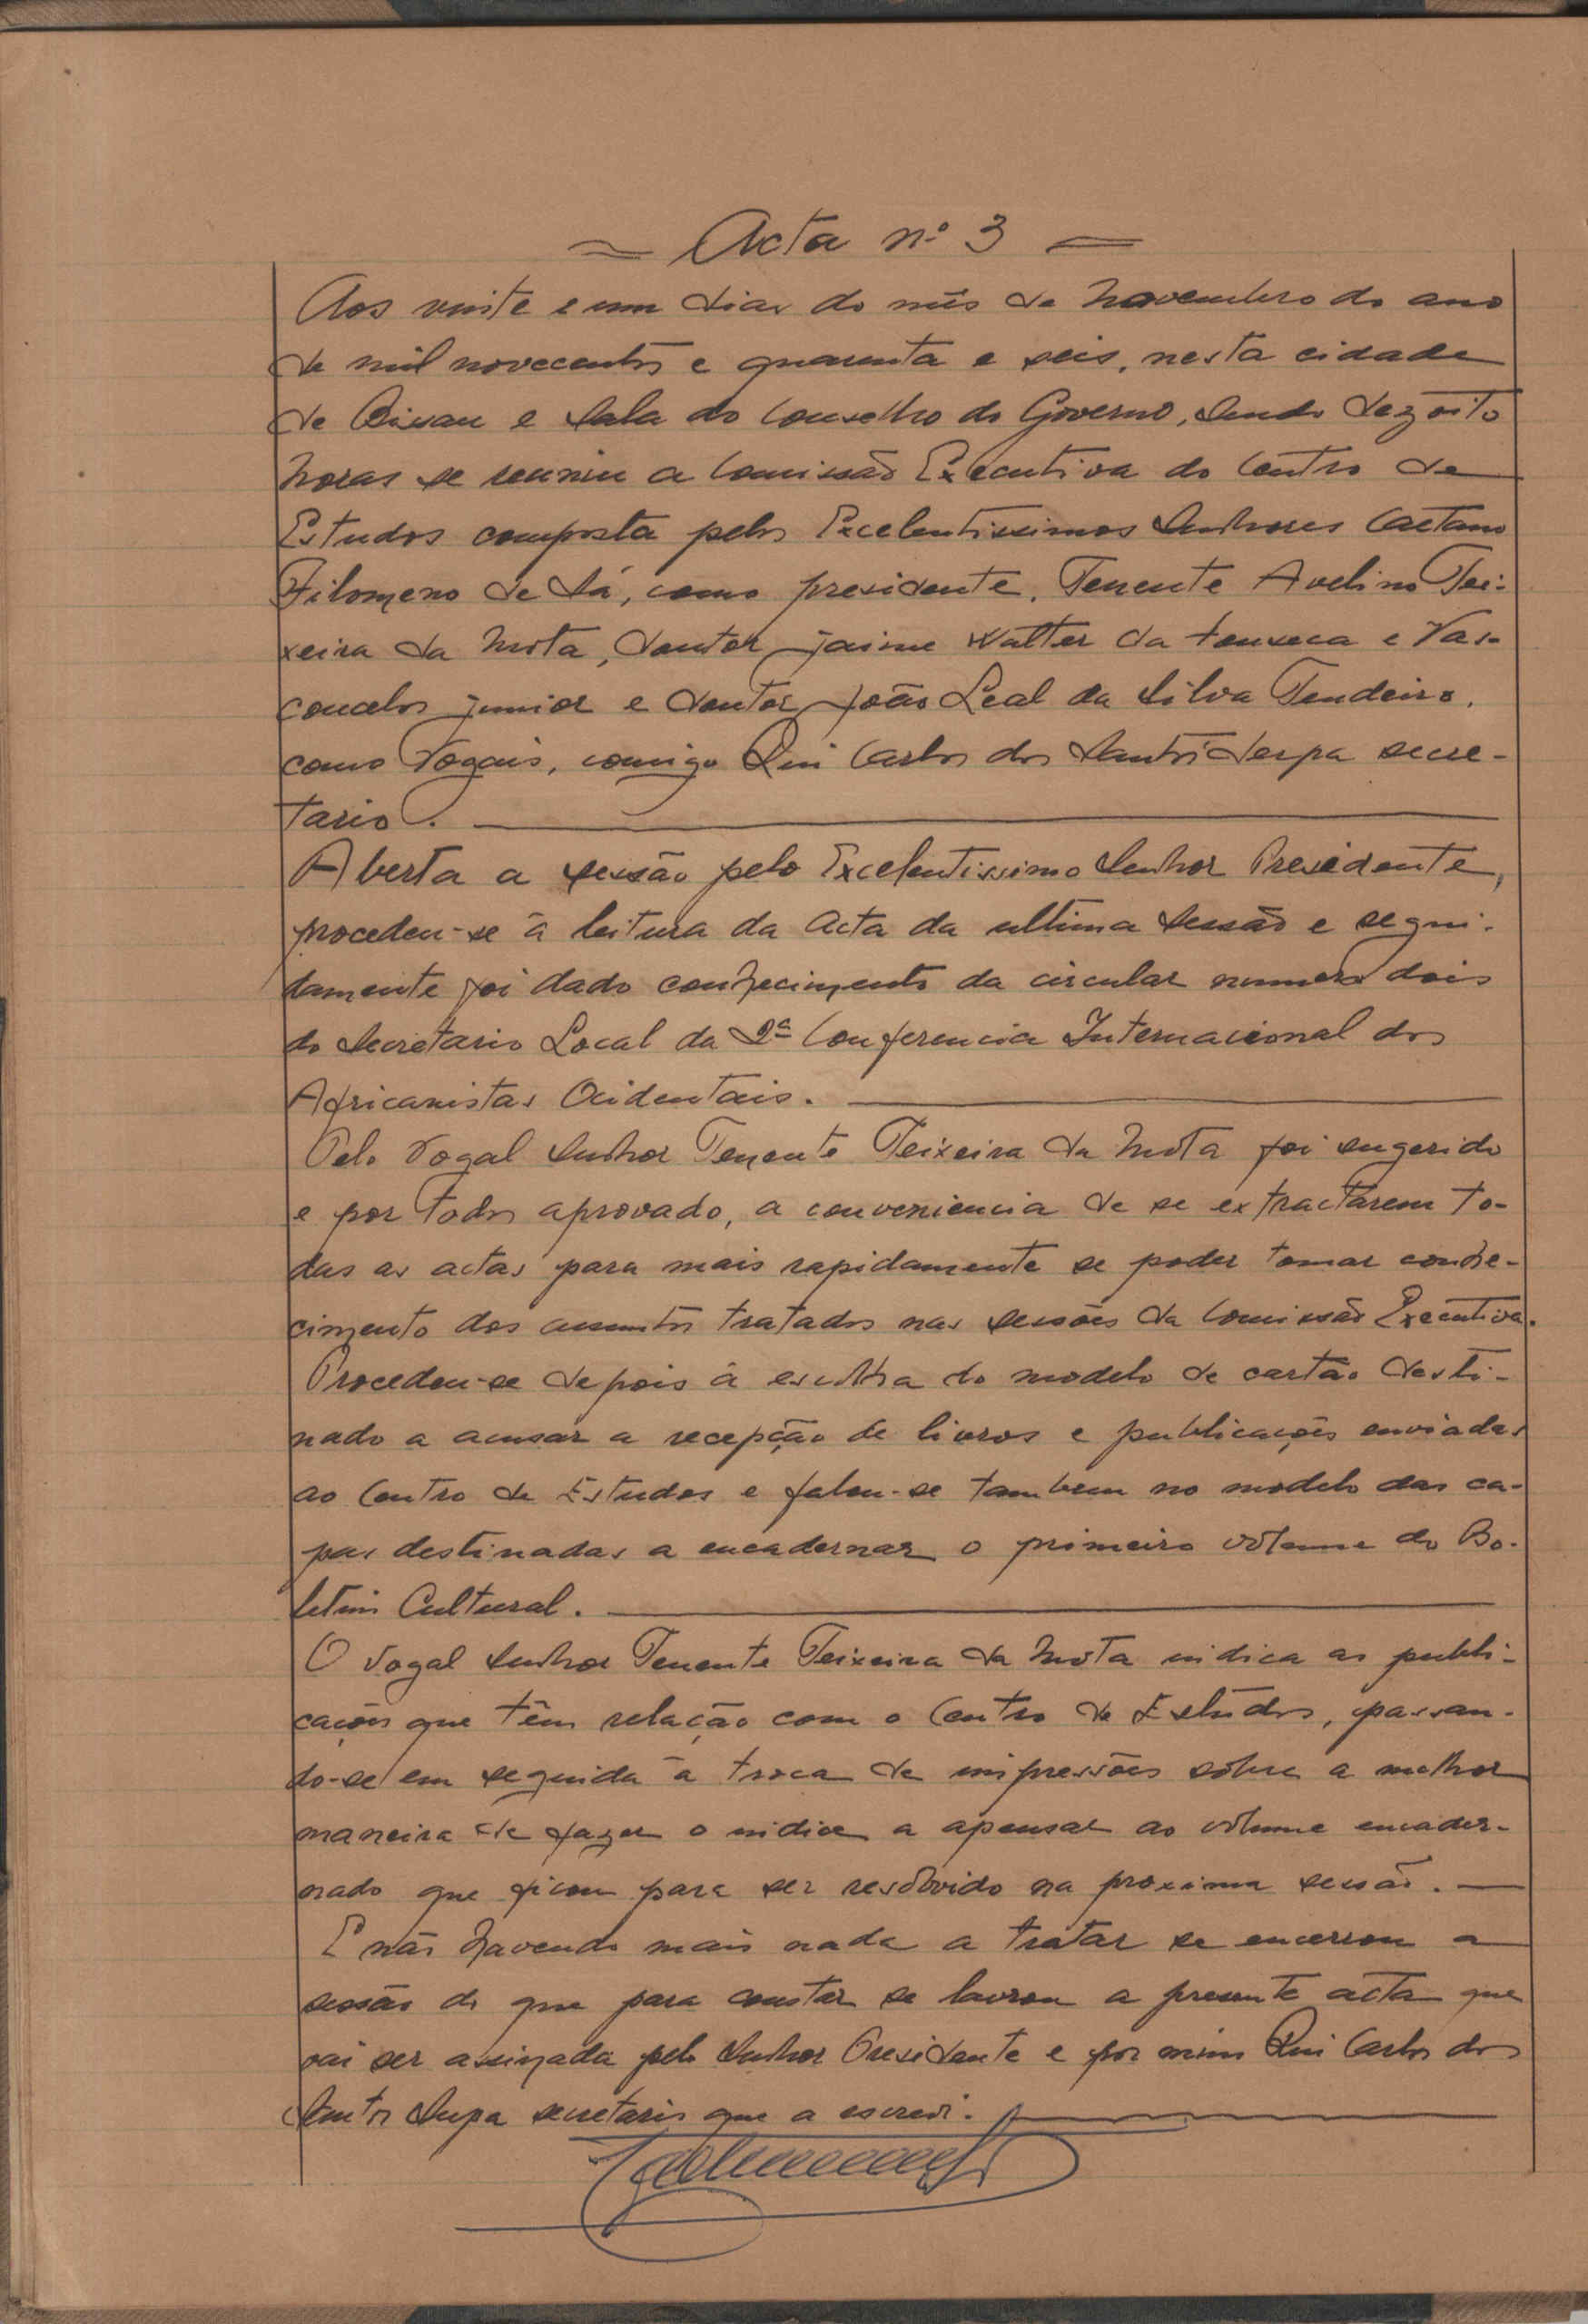 = Acta nº 3 =
Aos vinte e um dias do mês de Novembro do ano
de mil novecentos e quarenta e seis, nesta cidade
de Bissau e Sala do Conselho do Governo, sendo dezoito
horas se reuniu a Comissão Executiva do Centro de
Estudos composta pelos Excelentissimos Senhores Caetano
Filomeno de Sá, como presidente, Tenente Avelino Tei-
xeira da Mota, doutor Jaime Walter da Fonseca e Vas-
concelos Junior e doutor João Leal da Silva Tendeiro,
como Vogais, comigo Rui Carlos dos Santos Serpa secre-
tario.
Aberta a sessão pelo Excelentissimo Senhor Presidente,
procedeu-se à leitura da acta da ultima sessão e segui-
damente foi dado conhecimento da circular numero dois
do Secretario Local da 2ª Conferencia Internacional dos
Africanistas Ocidentais.
Pelo Vogal Senhor Tenente Teixeira da Mota foi sugerido
e por todos aprovado, a conveniencia de se extractarem to-
das as actas para mais rapidamente se poder tomar conhe-
cimento dos assuntos tratados nas sessões da Comissão Executiva.
Procedeu-se depois à escolha do modelo de cartão desti-
nado a acusar a recepção de livros e publicações enviadas
ao Centro de Estudos e falou-se tambem no modelo das ca-
pas destinadas a encadernar o primeiro volume do Bo-
letim Cultural.
O Vogal Senhor Tenente Teixeira da Mota indica as publi-
cações que têm relação com o Centro de Estudos, passan-
do-se em seguida à troca de impressões sôbre a melhor
maneira de fazer o indice a apensar ao volume encader-
nado que ficou para ser resolvido na proxima sessão.
E não havendo mais nada a tratar se encerrou a
sessão de que para constar se lavrou a presente acta que
vai ser assinada pelo Senhor Presidente e por mim Rui Carlos dos
Santos Serpa secretario que a escrevi.